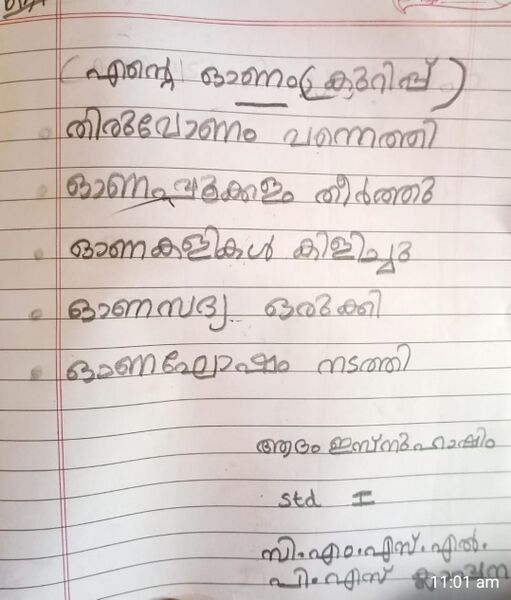 (എന്റെ ഓണം(കുറിപ്പ്)
തിരുവോണം വന്നെത്തി
ഓണപൂക്കളം തീർത്തു
ഓണകളികൾ കിളിച്ചു
ഓണസദ്യ ഒരുക്കി
ഓണഘോഷം നടത്തി
ആദം ഇബ്നു ഹാഷിം
Std I
സി.എം.എസ്.എൽ.
പി.എസ്
11:01 am